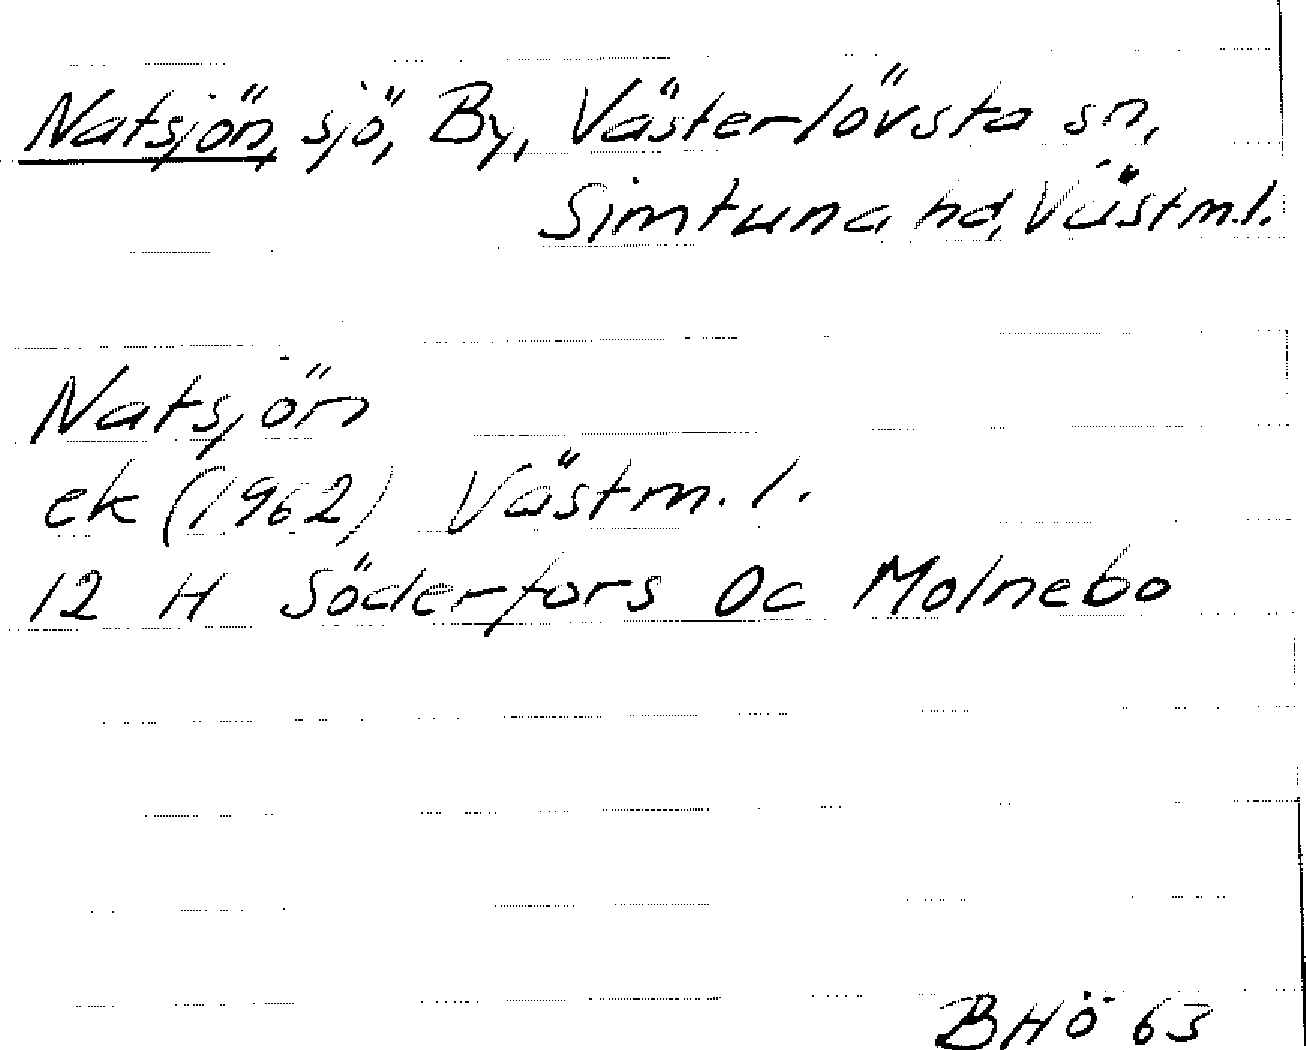 Natsjön, sjö, By, Västerlövsta sn,
Simtuna hd, Västm.l.
Natsjön
ek (1962) Västm.l.
12 H Söderfors 0c Molnebo
BHÖ 63